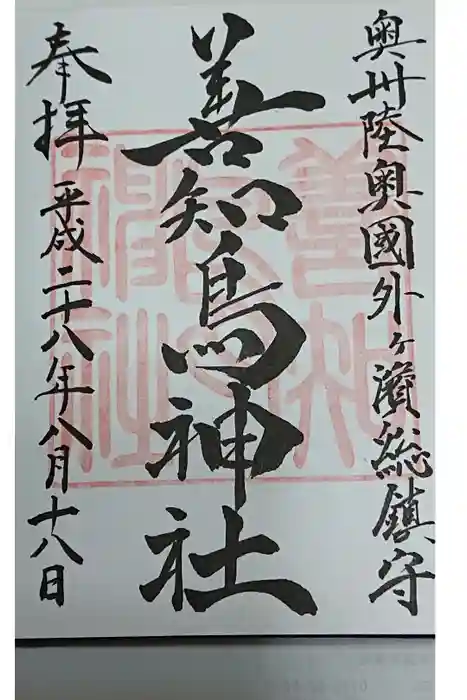 奥州陸奥國外ヶ濱総鎮守
善知鳥神社
奉拝
平成二十八年八月十八日
善知鳥神社